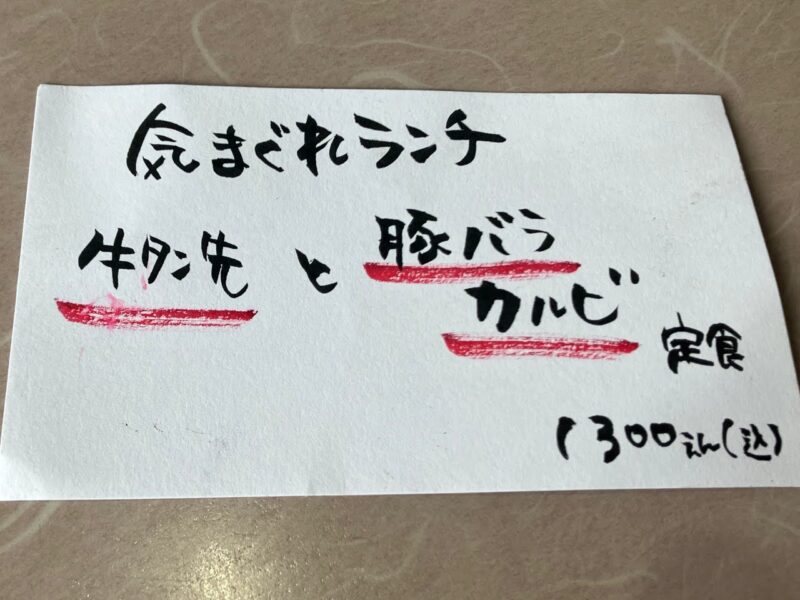 気まぐれランチ
牛タン先 と 豚バラ
カルビ 定食
1300えん(込)